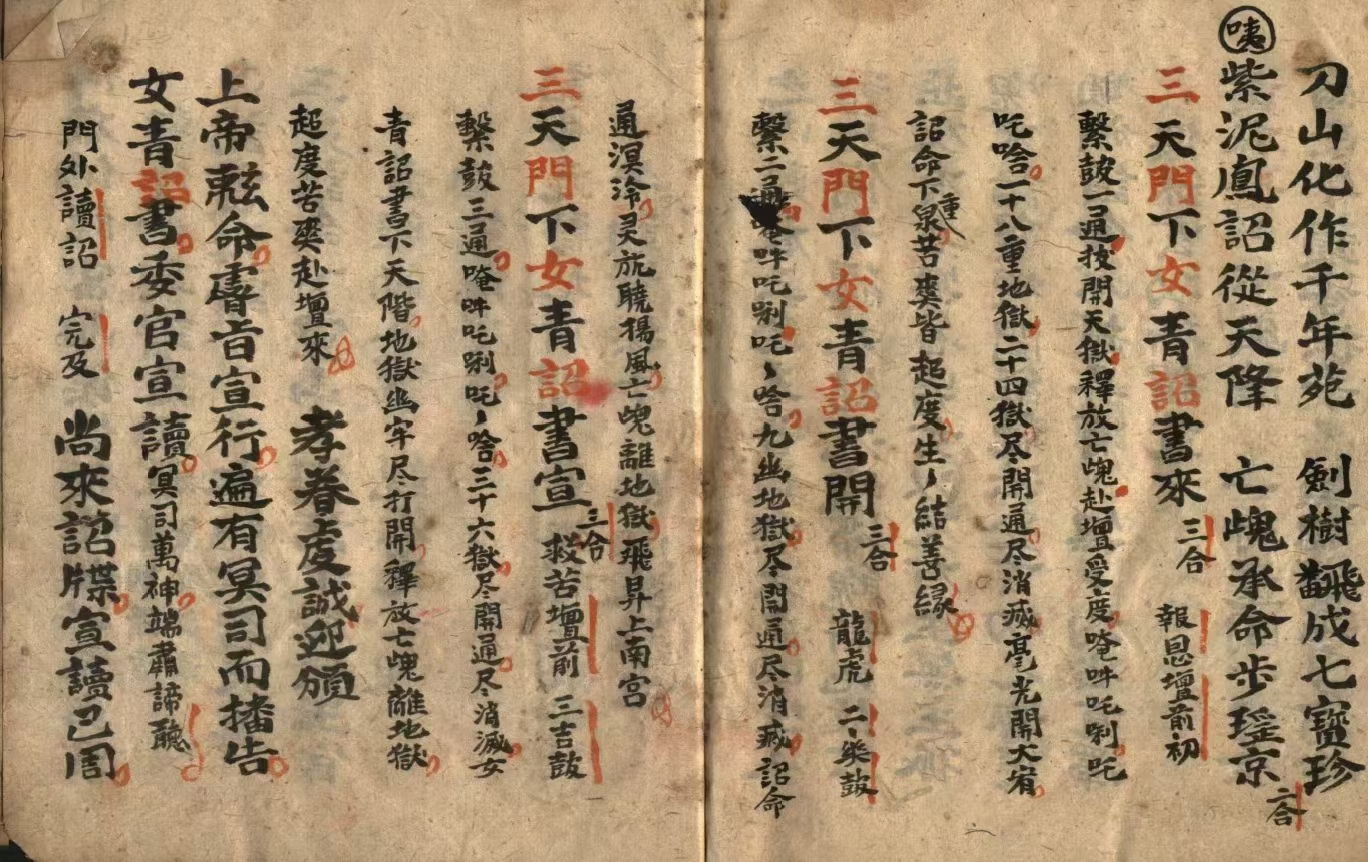 刀山化作千年苑　劍樹飜成七寶珍　二合
咦
紫泥鳳詔從天降　亡魂承命步瑶京
三天門下女青詔書來　三合　報恩壇前初
擊鼓一通接開天獄釋放亡魂赴壇受度唵吽吒唎吒
吒唅一十八重地獄二十四獄尽開通尽消滅毫光開大宥
詔命下重泉苦爽皆超度生〻結善緣
三天門下女青詔書開　三合　龍虎　二〻發鼓
擊二通唵吽吒唎吒〻唅九幽地獄尽開通尽消滅詔命
通溟泠灵旂驍揚風亡魂離地獄飛昇上南宫
三天門下女青詔書宣　三合　救苦壇前　三吉鼓
擊鼓三通唵吽吒唎吒〻唅三十六獄尽開通尽消滅女
青詔書下天階地獄幽牢尽打開釋放亡魂離地獄
超度苦爽赴壇來　孝眷虔誠迎頒
上帝勅命睿旨宣行遍有冥司而播告
女青詔書委官宣讀冥司萬神端肅諦聽
門外讀詔　完及　尚來詔牒宣讀已周